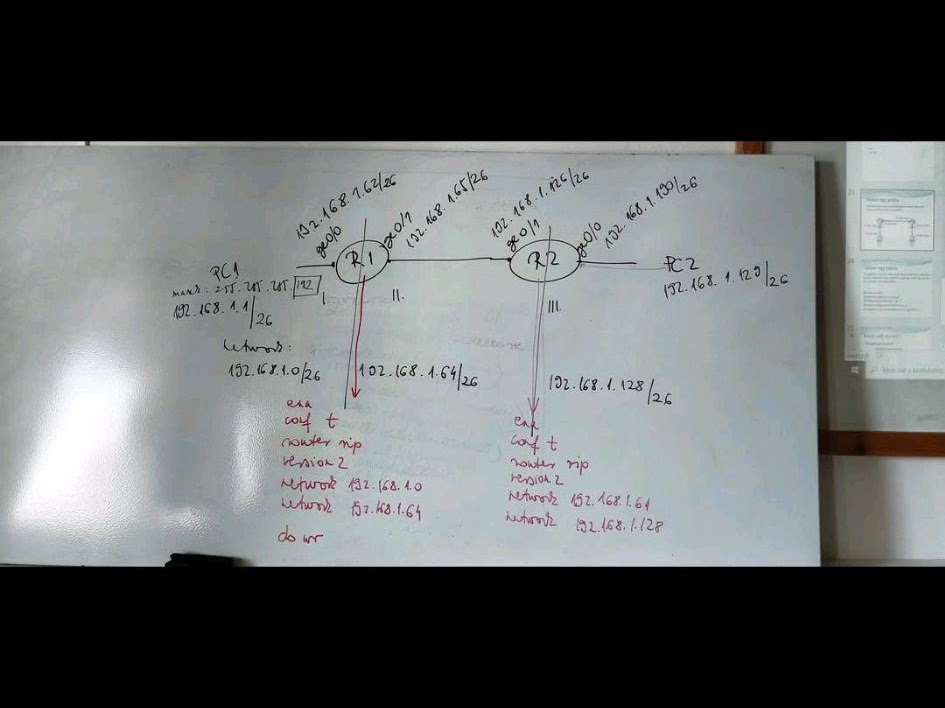 192.168.1.62/26
ge0/0
ge0/1
192.168.1.65/26
192.168.1.126/26
ge0/1
ge0/0
192.168.1.190/26
R1
R2
PC1
mask: 255.255.255.192
192.168.1.1/26
PC2
192.168.1.129/26
I.
II.
III.
network:
192.168.1.0/26
192.168.1.64/26
192.168.1.128/26
ena
conf t
router rip
version 2
network 192.168.1.0
network 192.168.1.64
do wr
ena
conf t
router rip
version 2
network 192.168.1.64
network 192.168.1.128